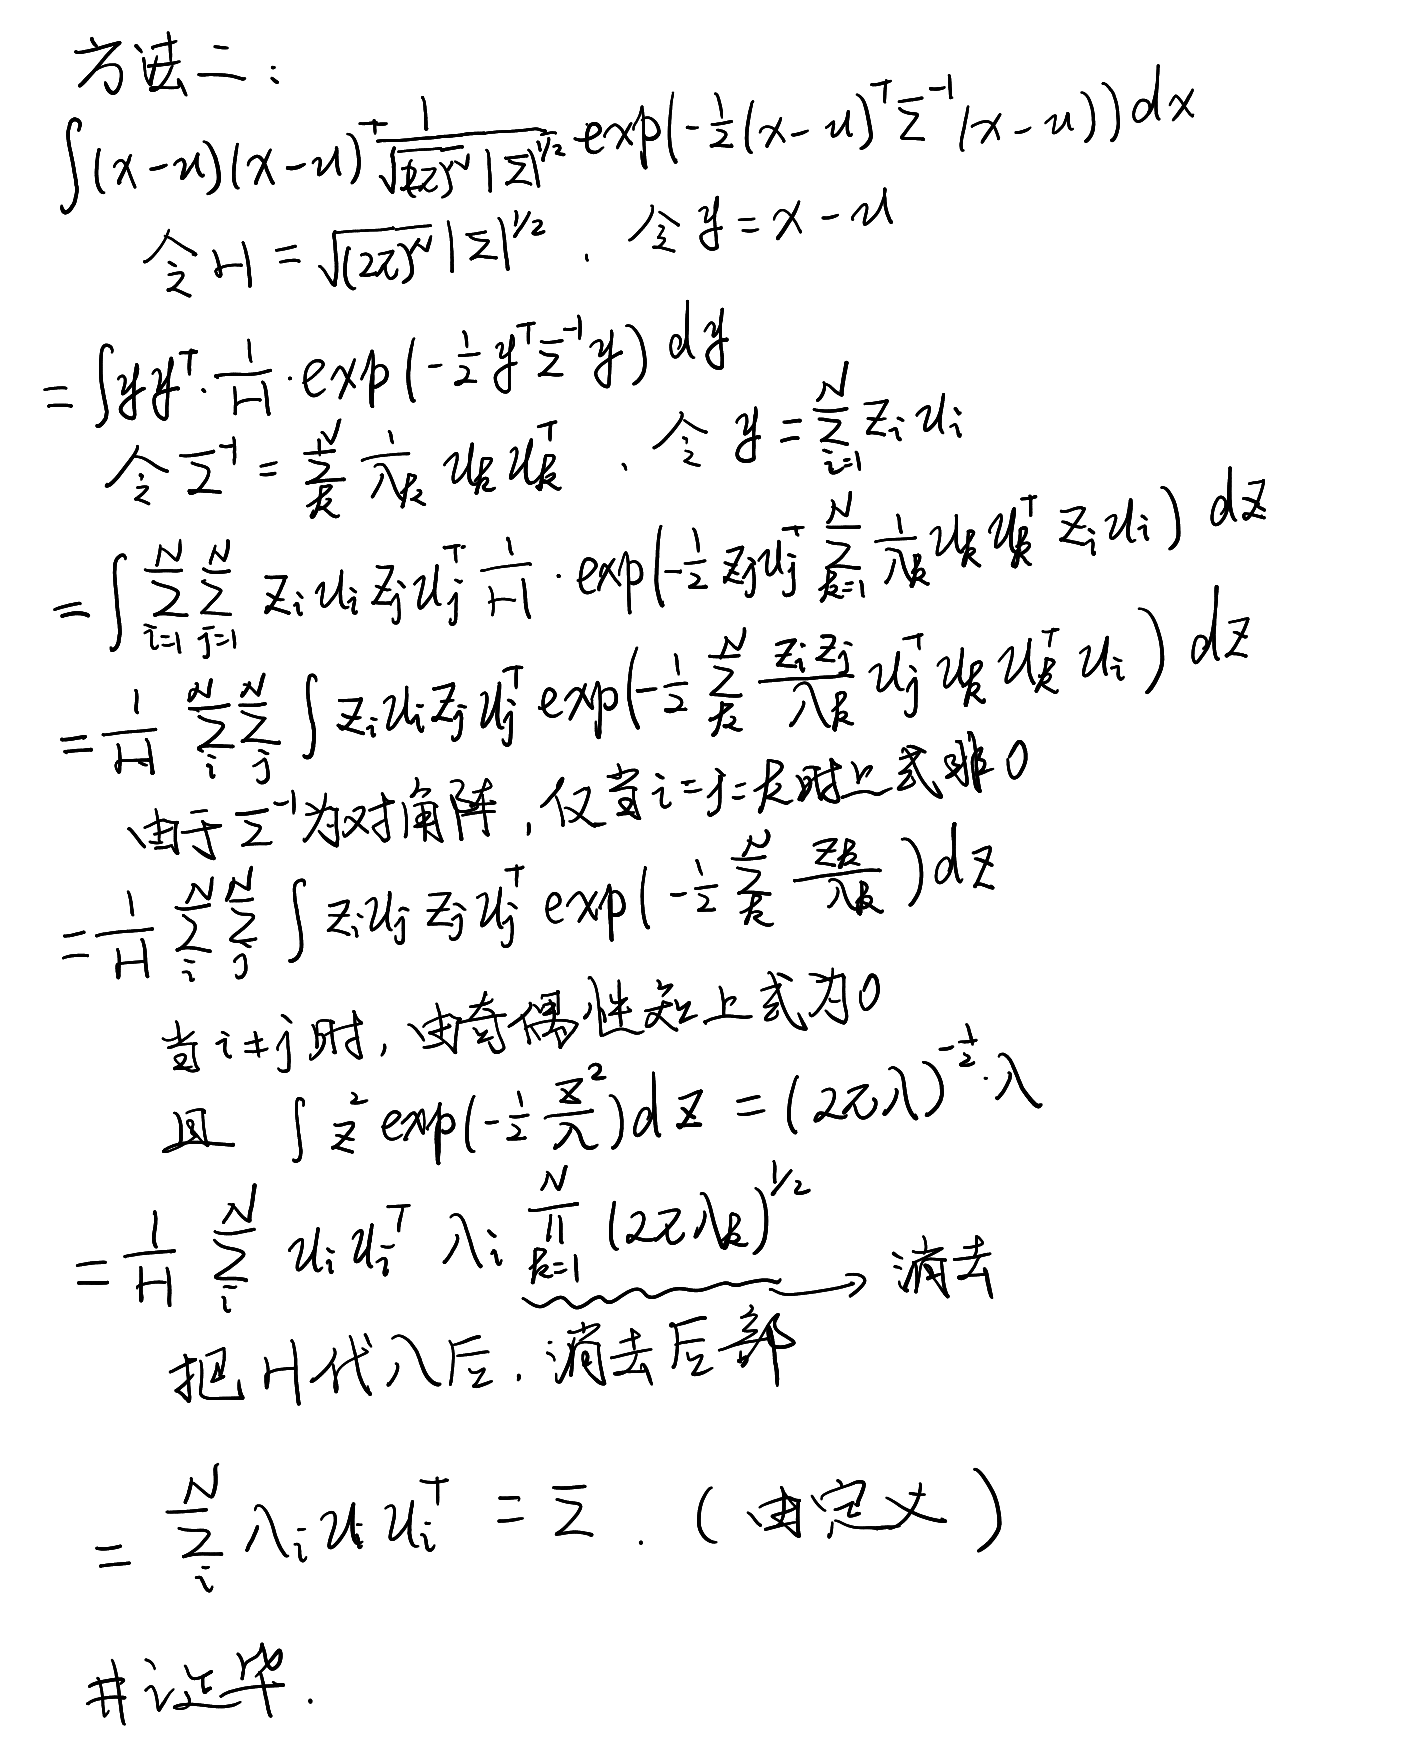 方法二：
∫(x-u)(x-u)^T 1/(√(2π)^N |Σ|^{1/2}) exp(-1/2 (x-u)^T Σ^{-1} (x-u)) dx
令 H = √(2π)^N |Σ|^{1/2} . 令 y = x - u
= ∫ y y^T · 1/H · exp(-1/2 y^T Σ^{-1} y) dy
令 Σ^{-1} = Σ_k^N 1/λ_k u_k u_k^T . 令 y = Σ_{i=1}^N z_i u_i
= ∫ Σ_{i=1}^N Σ_{j=1}^N z_i u_i z_j u_j^T 1/H · exp(-1/2 z_j u_j^T Σ_{k=1}^N 1/λ_k u_k u_k^T z_i u_i) dz
= 1/H Σ_i^N Σ_j^N ∫ z_i u_i z_j u_j^T exp(-1/2 Σ_k^N (z_i z_j)/λ_k u_j^T u_k u_k^T u_i) dz
由于 Σ^{-1} 为对角阵, 仅当 i=j=k 时上式非0
= 1/H Σ_i^N Σ_j^N ∫ z_i u_j z_j u_j^T exp(-1/2 Σ_k^N z_k/λ_k) dz
当 i≠j 时, 由奇偶性知上式为0
且 ∫ z^2 exp(-1/2 z^2/λ) dz = (2πλ)^{-1/2} · λ
= 1/H Σ_i^N u_i u_i^T λ_i Π_{k=1}^N (2πλ_k)^{1/2} → 消去
把 H 代入后. 消去后部
= Σ_i^N λ_i u_i u_i^T = Σ . (由定义)
# 证毕.